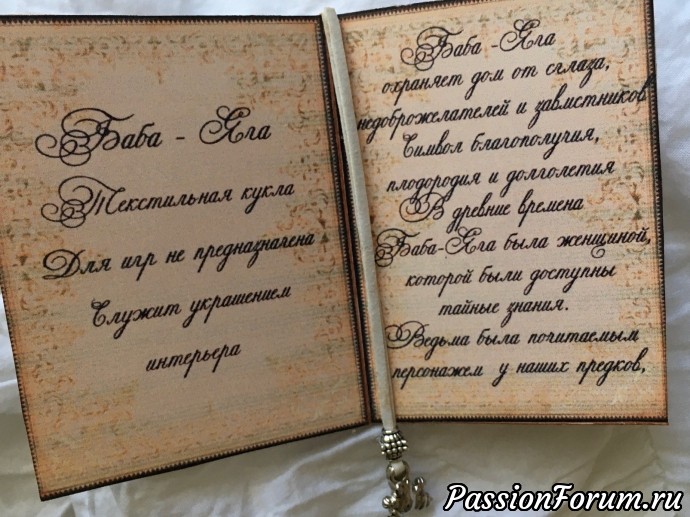 Баба - Яга
Текстильная кукла
Для игр не предназначена
Служит украшением
интерьера
Баба -Яга
охраняет дом от сглаза,
недоброжелателей и завмстников
Символ благополучия,
плодородия и долголетия
В древние времена
Баба-Яга была женщиной,
которой были доступны
тайные знания.
Ведьма была почитаемым
персонажем у наших предков,
PassionForum.ru